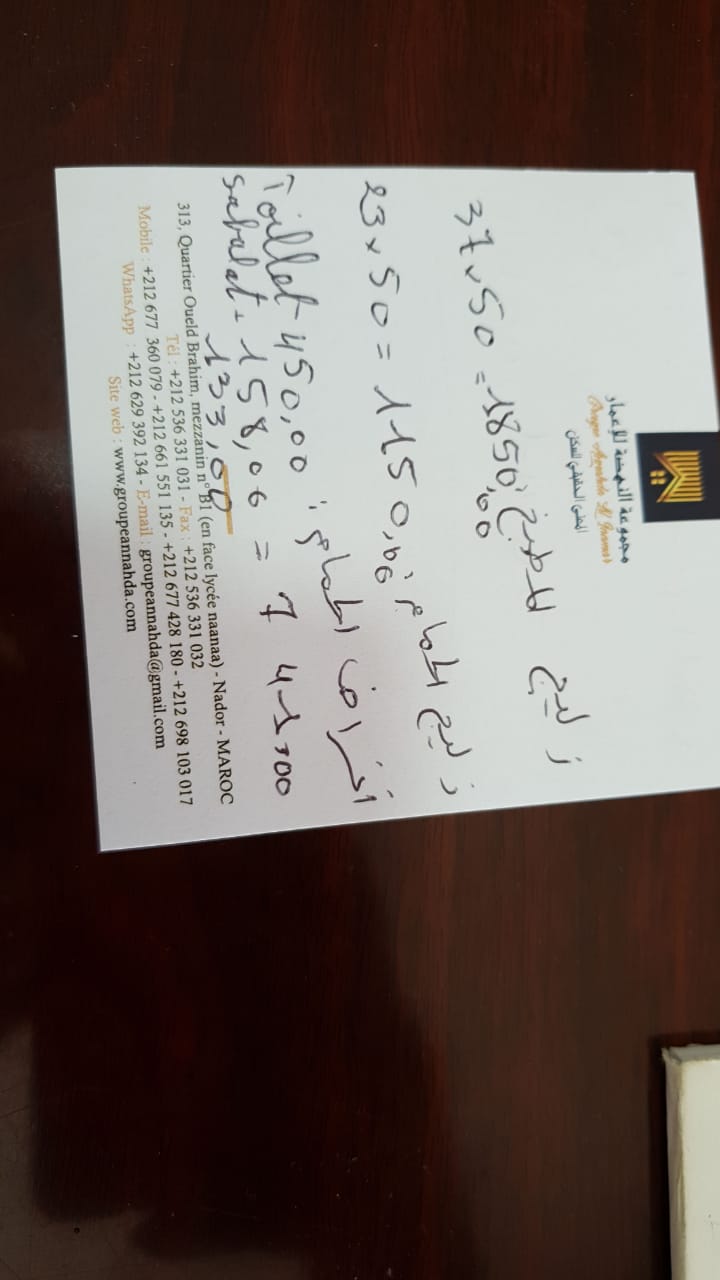 مجموعة النهضة للإعمار
Groupe Annahda Al Iaamar
المعنى الحقيقي للسكن
زليج المطبخ:
37 x 50 = 1850,00
زليج الحمام:
23 x 50 = 1150,00
أغراض الحمام:
Toillet 450,00
sabalat = 158,00 = 741,00
133,00
313, Quartier Oueld Brahim, mezzanin n° B1 (en face lycée naanaa) - Nador - MAROC
Tél : +212 536 331 031 - Fax : +212 536 331 032
Mobile : +212 677 360 079 - +212 661 551 135 - +212 677 428 180 - +212 698 103 017
WhatsApp : +212 629 392 134 - E-mail : groupeannahda@gmail.com
Site web : www.groupeannahda.com